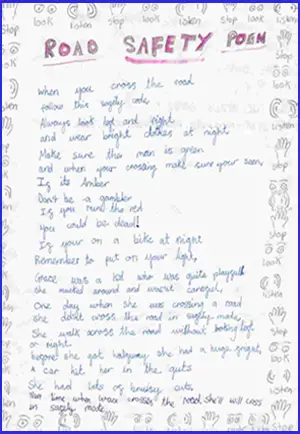 stop look listen stop look
ROAD SAFETY POEM
When you cross the road
follow this safety code,
Always look left and right
and wear bright clothes at night
Make sure the man is green
and when your crossing make sure your seen,
If its Amber
Dont be a gambler
If you run the red
you could be dead!
If your on a bike at night
Remember to put on your light,
Grace was a kid who was quite playfull
she mucked around and wasnt careful,
One day when she was crossing a road
she didnt cross the road in safety mode,
She walk across the road without looking left
or right.
before she got halfway she had a huge fright,
A car hit her in the guts
She had lots of bruises cuts
Now time when Grace crosses the road she'll will cross
in safety mode